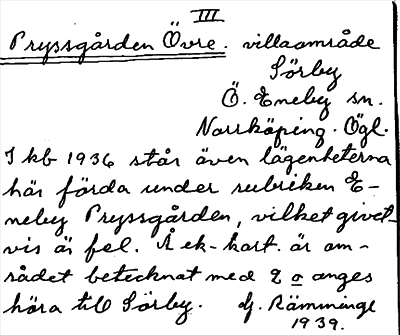 III
Pryssgården Övre. villaområde
Sörby
Ö. Eneby sn.
Norrköping. Ögl.
I kb 1936 står även lägenheterna
här förda under rubriken E-
neby Pryssgården, vilket givet-
vis är fel. Å ek-kart. är om-
rådet betecknat med 2 o anges
höra till Sörby. Hj. Rämminge
1939.